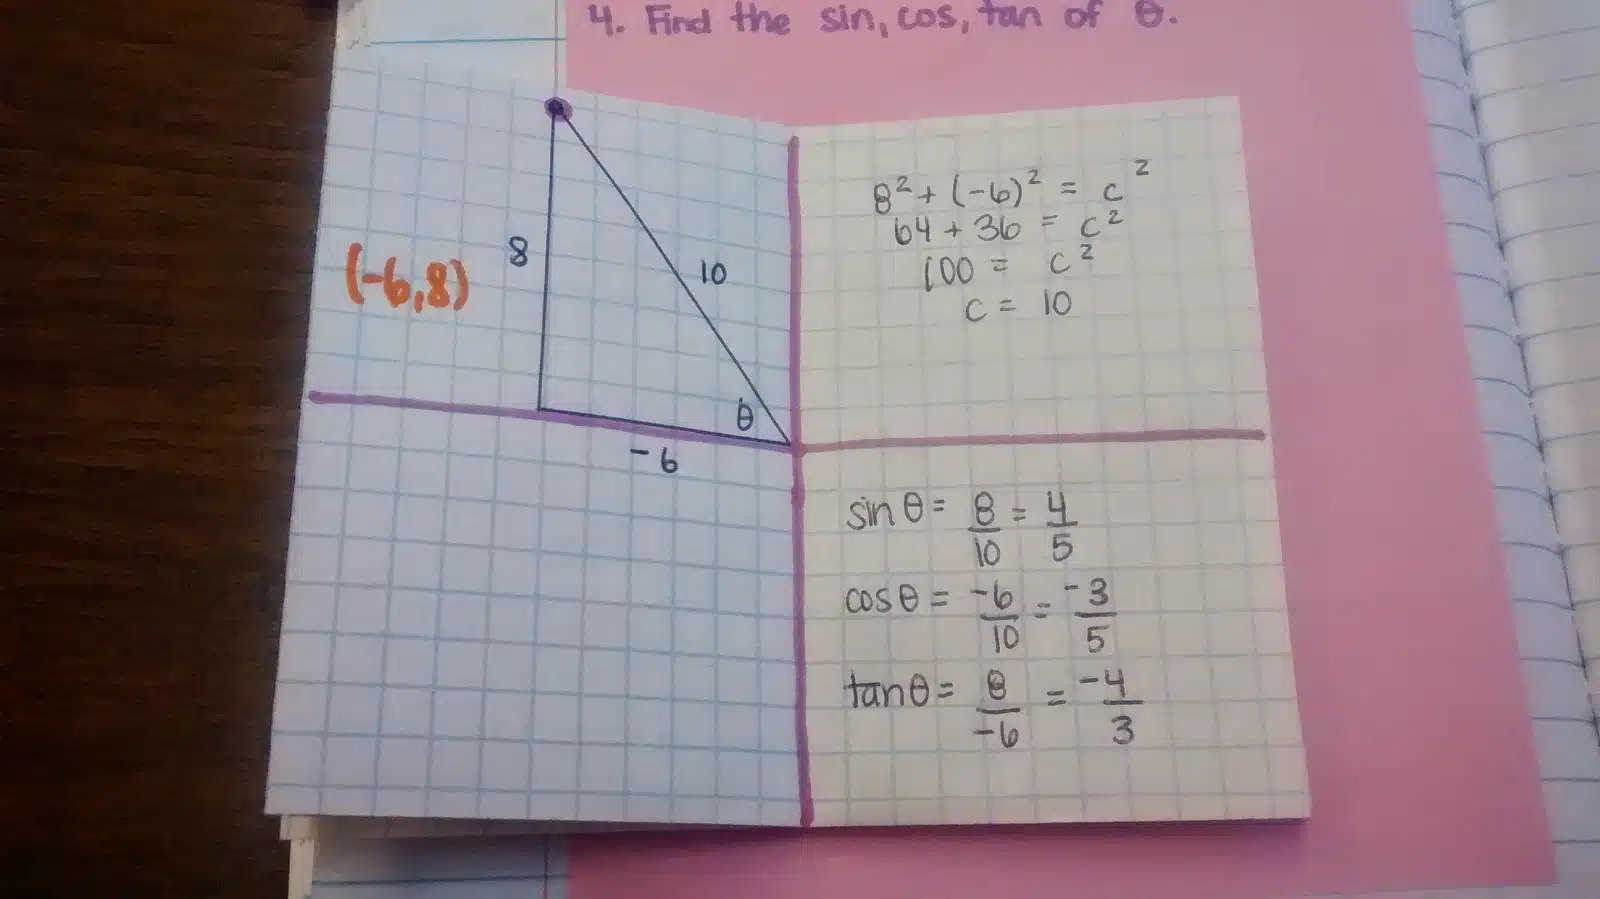 4. Find the sin, cos, tan of θ.
(-6,8)
8
10
θ
-6
8² + (-6)² = c²
64 + 36 = c²
100 = c²
c = 10
sin θ = 8/10 = 4/5
cos θ = -6/10 = -3/5
tan θ = 8/-6 = -4/3